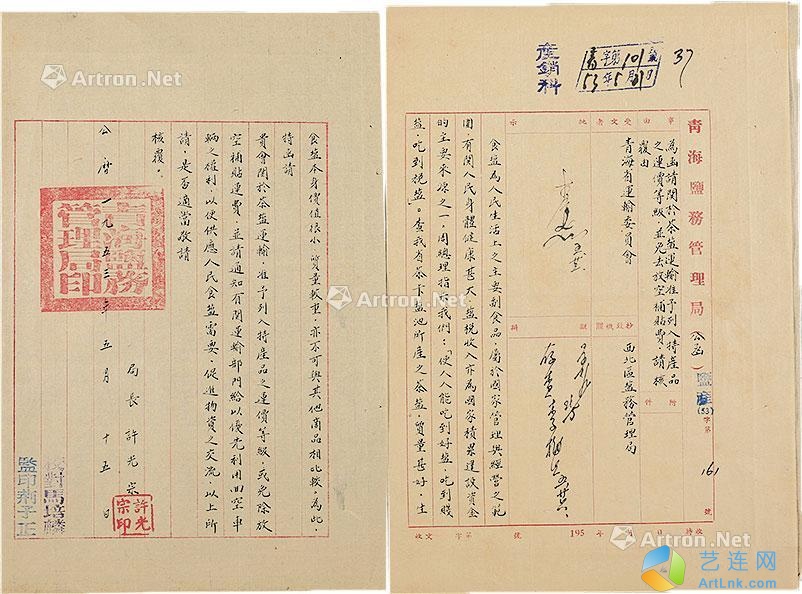 青海鹽務管理局(公函)
鹽產(53)字第161號
產銷科
青字第101號
53年5月21日
37
事由
為函請關於茶鹽運輸准予列入特產品
之運價等級並免去放空補貼費請核
覆由
受文者
青海省運輸委員會
批示
抄致機關
西北區鹽務管理局
擬辦
附件
食鹽為人民生活上之主要副食品,屬於國家管理與經營之範
圍,有關人民身體健康甚大,鹽稅收入亦為國家積累建設資金
的主要來源之一,周總理指示我們:「使人人能吃到好鹽,吃到賤
鹽,吃到稅鹽。」查我省茶卡鹽池所產之茶鹽,質量甚好,生
收文 字第 號 195 年 月 日 時收
食鹽本身價值很小,質量較重,亦不可與其他商品相比較,為此,
特函請
貴會關於茶鹽運輸,准予列入特產品之運價等級,或免除放
空補貼運費,並請通知有關運輸部門給以優先利用回空車
輛之權利,以便供應人民食鹽需要,促進物資之交流,以上所
請,是否適當敬請
核覆。
局長許光宗
許光宗印
公曆一九五三年五月十五日
青海鹽務管理局印
校對馬培麟
監印靳子正
Artron.Net
Artron.Net
Artron.Net
Artron.Net
Artron.Net
艺连网
ArtLnk.com